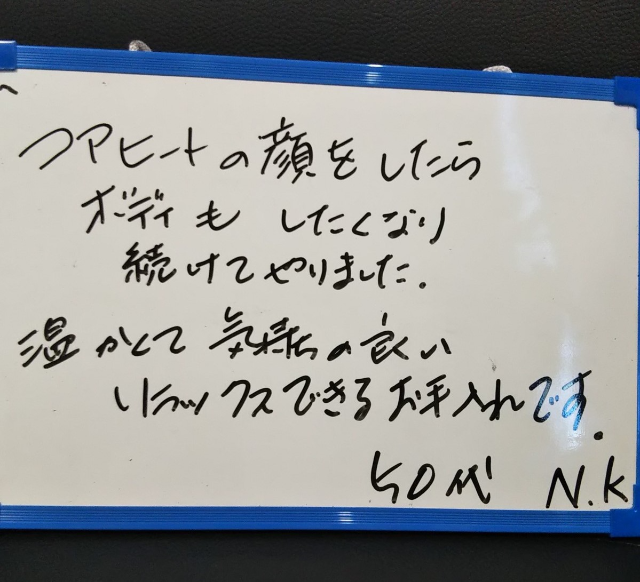 コアヒートの顔をしたら
ボディも したくなり
続けてやりました.
温かくて 気持ちの良い
リラックスできるお手入れです.
50代 N.K